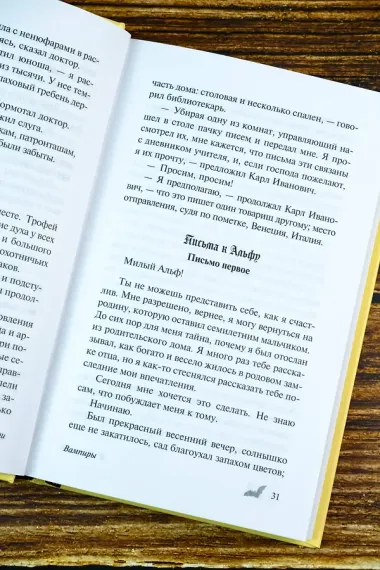 ла с ненюфарами в рас-
ясь, сказал доктор.
тил юноша, — я рас-
из тысячи. У нее тем-
паховый гребень дер-
ормотал доктор.
жил слуга.
кам, патронташам,
были забыты.
есте. Трофей
ие духа у всех
и большого
охотничьих
аков.
и и подсту-
л продол-
новления
да и ар-
рые се-
прав-
пели
за-
и
ни
часть дома: столовая и несколько спален, — гово-
рил библиотекарь.
— Убирая одну из комнат, управляющий на-
шел в столе пачку писем и передал мне. Я про-
смотрел их, мне кажется, что письма эти связаны
с дневником учителя, и, если господа пожелают,
я их прочту, — предложил Карл Иванович.
— Просим, просим!
— Я предполагаю, — продолжал Карл Ивано-
вич, — что это пишет один товарищ другому; место
отправления, судя по пометке, Венеция, Италия.
Письма к Альфу
Письмо первое
Милый Альф!
Ты не можешь представить себе, как я счаст-
лив. Мне разрешено, вернее, я могу вернуться на
родину, которую оставил семилетним мальчиком.
До сих пор для меня тайна, почему я был отослан
из родительского дома. Я много раз тебе расска-
зывал, как богато и весело жилось в родовом зам-
ке отца, но я как-то стеснялся рассказать тебе по-
следние мои впечатления.
Сегодня мне хочется это сделать. Не знаю
сам, что побуждает меня к тому.
Начинаю.
Был прекрасный весенний вечер, солнышко
еще не закатилось, сад благоухал запахом цветов;
Вампиры
31